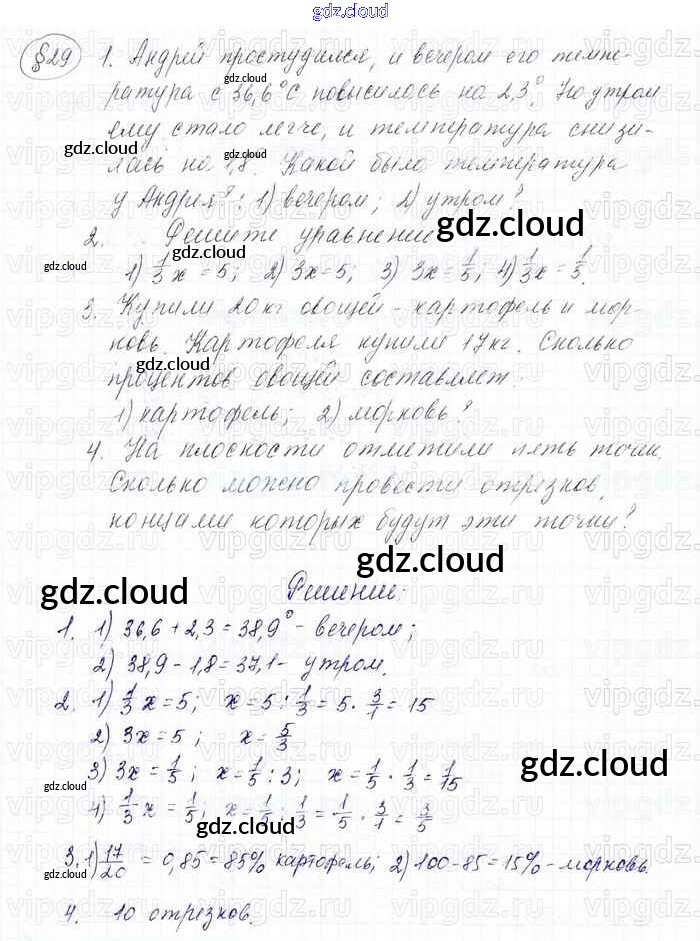 gdz.cloud
§29 1. Андрей простудился, и вечером его темпе-
ратура с 36,6°С повысилась на 2,3°. Но утром
ему стало легче, и температура снизи-
лась на 1,8°. Какой была температура
у Андрея: 1) вечером; 2) утром?
2. Решите уравнение
1) 1/3 x = 5; 2) 3x = 5; 3) 3x = 1/5; 4) 1/3 x = 1/5.
3. Купили 20 кг овощей - картофель и мор-
ковь. Картофеля купили 17 кг. Сколько
процентов овощей составляет:
1) картофель; 2) морковь?
4. На плоскости отметили пять точек.
Сколько можно провести отрезков,
концами которых будут эти точки?
Решение:
1. 1) 36,6 + 2,3 = 38,9° - вечером;
2) 38,9 - 1,8 = 37,1 - утром.
2. 1) 1/3 x = 5; x = 5 : 1/3 = 5 · 3/1 = 15
2) 3x = 5; x = 5/3
3) 3x = 1/5; x = 1/5 : 3; x = 1/5 · 1/3 = 1/15
4) 1/3 x = 1/5; x = 1/5 : 1/3 = 1/5 · 3/1 = 3/5
3. 1) 17/20 = 0,85 = 85% картофель; 2) 100 - 85 = 15% - морковь.
4. 10 отрезков.